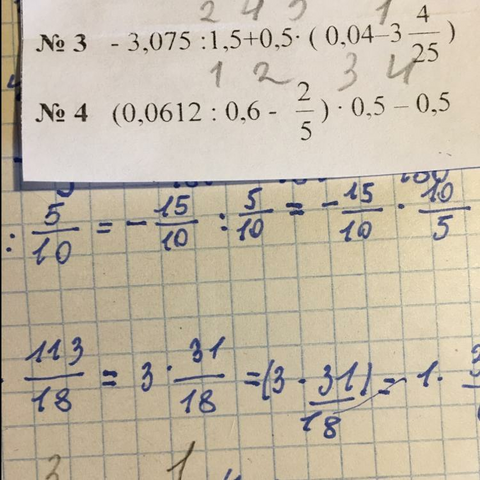 2 4 3 1
№ 3 - 3,075 :1,5+0,5· ( 0,04–3 4/25 )
1 2 3 4
№ 4 (0,0612 : 0,6 - 2/5 ) · 0,5 – 0,5
: 5/10 = - 15/10 : 5/10 = - 15/10 · 10/5
113/18 = 3 · 31/18 = (3 · 31/18) = 1 ·
3 1